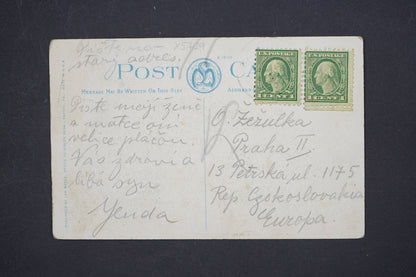 Pište na
starý adres.
POST CA
MESSAGE MAY BE WRITTEN ON THIS SIDE
U.S. POSTAGE
1 CENT 1
U.S. POSTAGE
1 CENT 1
Pište mojí ženě
a matce oni
velice pláčou.
Vás zdraví a
líbá syn
Jenda
J. Žezulka
Praha II
13 Petrská ul. 1175
Rep. Czekoslovakia
Europa.